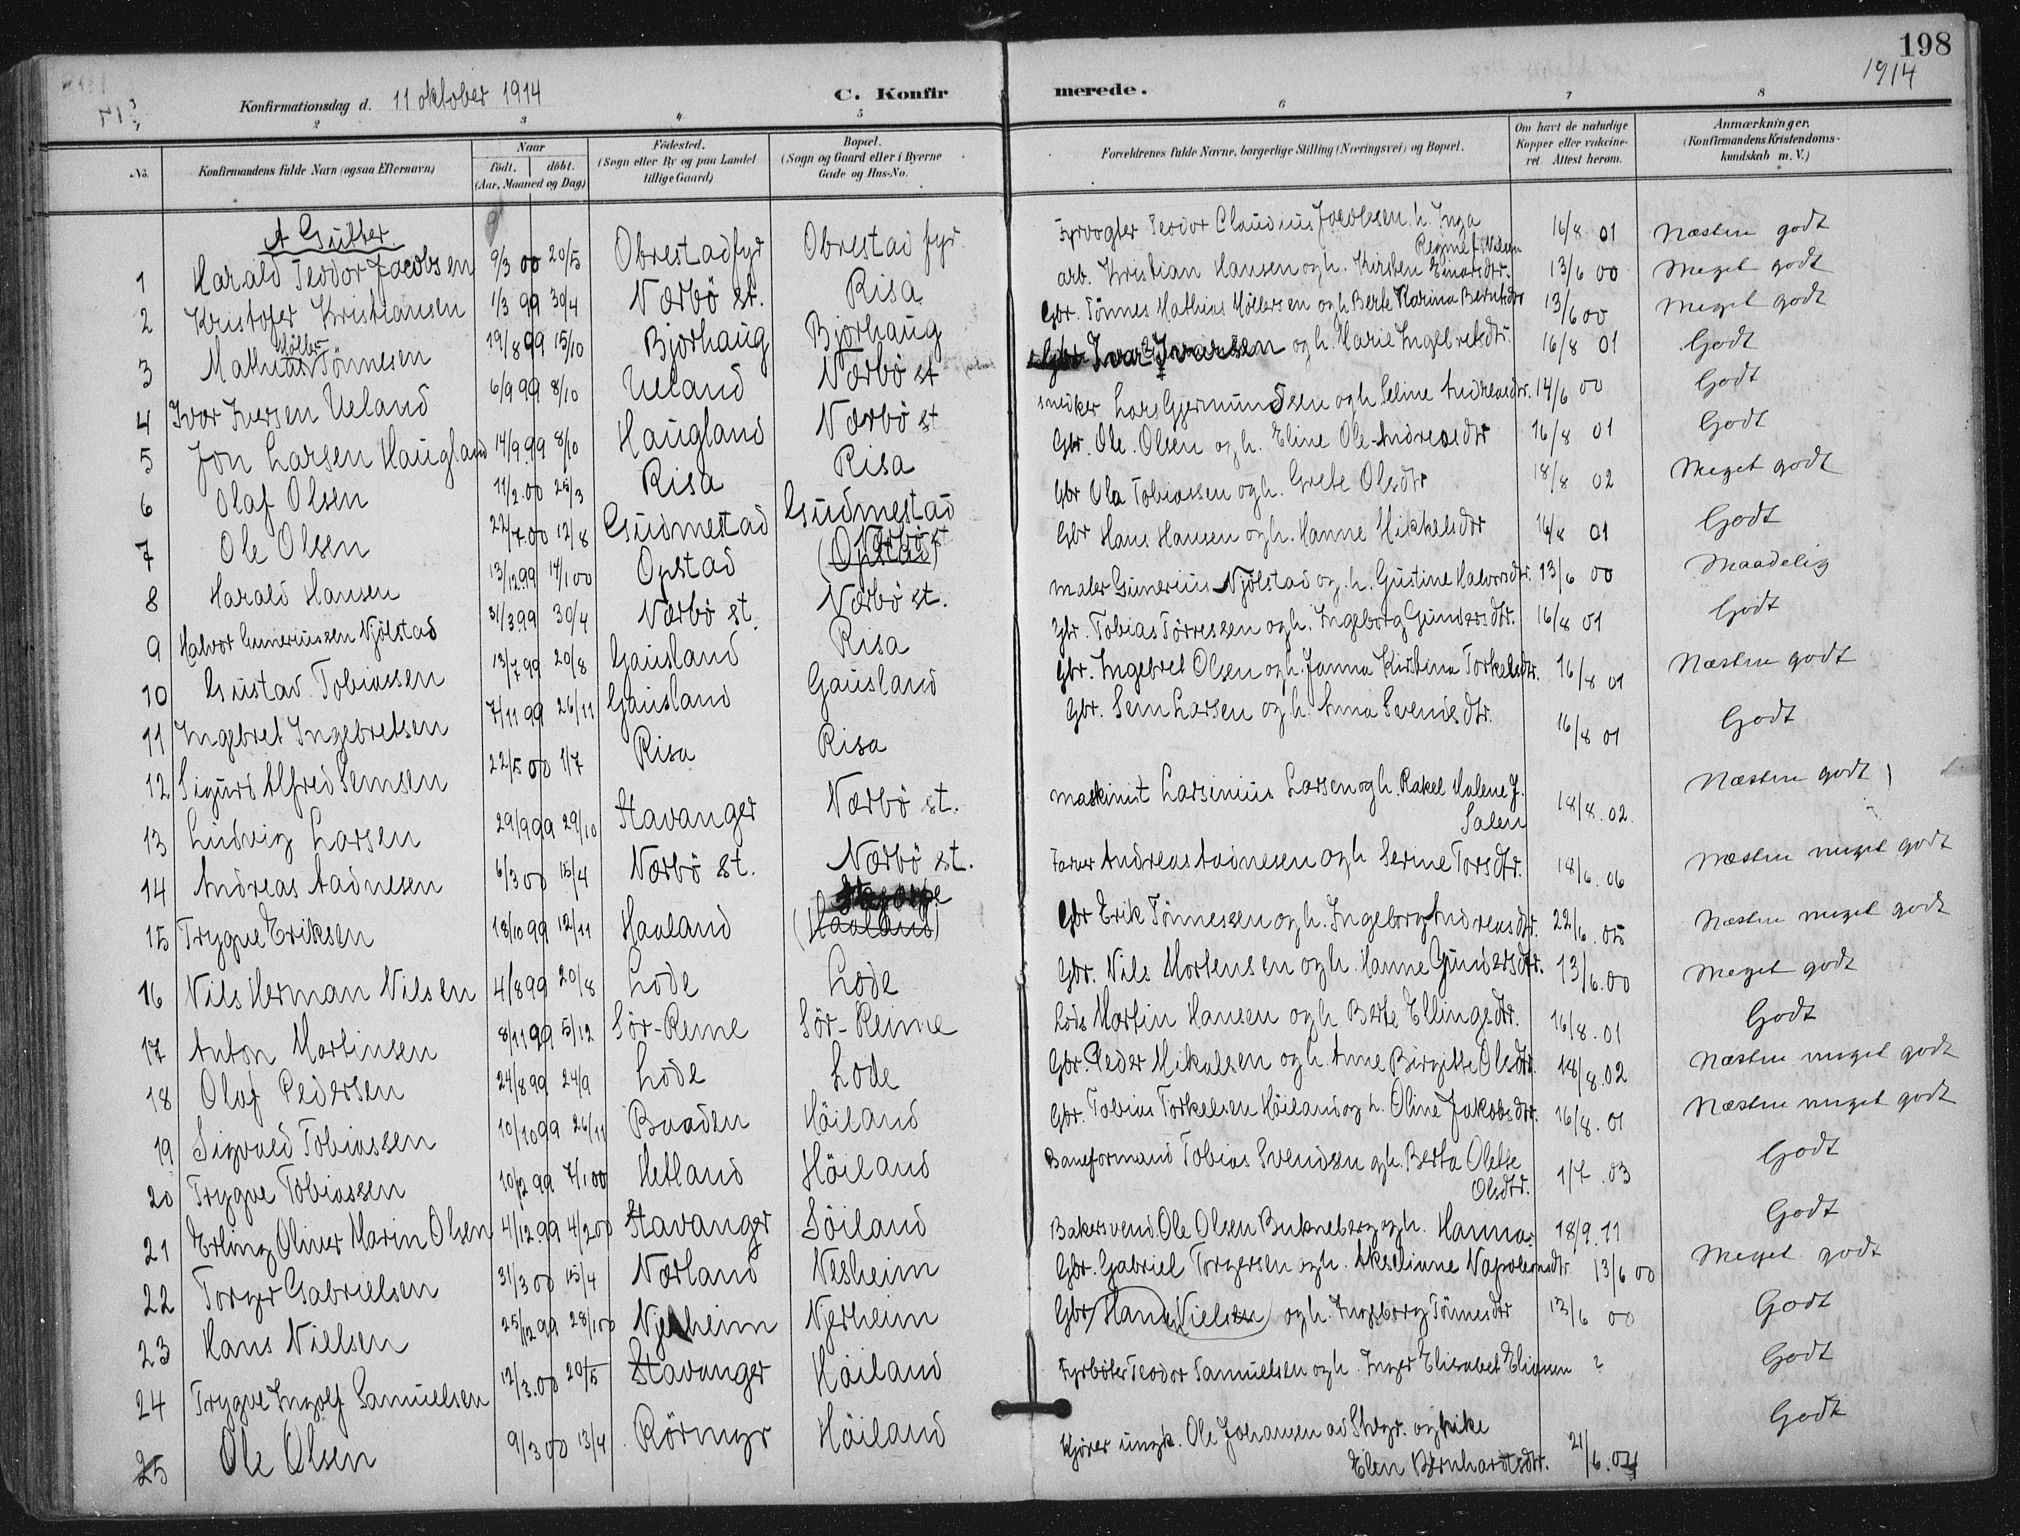 198
1914
Konfirmationsdag d. 11 oktober 1914
C. Konfirmerede.
2 3 4 5 6 7 8
No.
Konfirmandens fulde Navn (ogsaa Efternavn)
Naar
födt. döbt.
(Aar, Maaned og Dag)
Födested.
(Sogn eller By og paa Landet
tillige Gaard)
Bopæl.
(Sogn og Gaard eller i Byerne
Gade og Hus-No.
Forældrenes fulde Navne, borgerlige Stilling (Næringsvei) og Bopæl.
Om havt de naturlige
Kopper eller vakcine-
ret. Attest herom.
Anmærkninger.
(Konfirmandens Kristendoms-
kundskab m. V.)
A Gutter.
1 Harald Teodor Jacobsen 9/3 00 20/5 Obrestadfyr Obrestad fyr Fyrvogter Teodor Claudius Jacobsen h. Inga Regine f. Nilsen 16/8 01 Næsten godt
2 Kristofer Kristiansen 1/3 99 30/4 Nærbö st. Risa arb. Kristian Hansen og h. Kirsten Einarsdtr. 13/6 00 Meget godt
3 Mathias Möller Tönnesen 19/8 99 15/10 Bjorhaug Bjorhaug Gbr. Tönnes Mathias Möllersen og h. Berte Karina Berntsdtr 13/6 00 Meget godt
4 Ivar Iversen Ueland 6/9 99 8/10 Ueland Nærbö st Gbr Ivar Ivarsen og h. Marie Ingebretsdtr. 16/8 01 Godt
5 Jon Larsen Haugland 14/9.99 8/10 Haugland Nærbö st snedker Lars Gjermundsen og h. Seline Andreasdtr. 14/6 00 Godt
6 Olaf Olsen 11/2.00 25/3 Risa Risa Gbr. Ole Olsen og h. Eline Ole-Andreasdtr 16/8 01 Godt
7 Ole Olsen 22/7.00 12/8 Gudmestad Gudmestad Gbr Ola Tobiassen og h. Grete Olsdtr 18/8 02 Meget godt
8 Harald Hansen 13/12.99 14/1 00 Opstad (Opstad) Nærbö st Gbr Hans Hansen og h. Hanne Mikkelsdtr 16/8 01 Godt
9 Halvor Guneriussen Njölstad 31/3.99 30/4 Nærbö st. Nærbö st. maler Gunerius Njölstad og h. Gustine Halvorsdtr. 13/6 00 Maadelig
10 Gustav Tobiassen 13/7.99 20/8 Gausland Risa Gbr. Tobias Törressen og h. Ingeborg Gundersdtr. 16/8 01 Godt
11 Ingebret Ingebretsen 7/11 99 26/11 Gausland Gausland Gbr. Ingebret Olsen og h. Janna Kristina Torkelsdtr. 16/8 01 Næsten godt
12 Sigurd Alfred Semsen 22/5 00 1/7 Risa Risa Gbr. Sem Larsen og h. Anna Svendsdtr. 16/8 01 Godt
13 Ludvig Larsen 29/9 99 29/10 Stavanger Nærbö st. maskinist Larsenius Larsen og h. Rakel Malene J. Salen 18/8.02. Næsten godt
14 Andreas Aadnesen 6/3 00 15/4 Nærbö st. Nærbö st. Farver Andreas Aadnesen og h Serine Torsdtr. 18/6.06 Næsten meget godt
15 Trygve Eriksen 18/10 99 12/11 Haaland (Haaland) Gbr Erik Tönnessen og h. Ingeborg Andreasdtr. 22/6.05 Næsten meget godt
16 Nils Herman Nilsen 4/8 99 20/8 Lode Lode Gbr. Nils Mortensen og h. Hanne Gundersdtr. 13/6.00 Meget godt
17 Anton Martinsen 8/11 99 5/12 Sör-Reime Sör-Reime Lods Martin Hansen og h. Berte Ellingsdtr. 16/8.01 Godt
18 Olaf Pedersen 24/8 99 24/9 Lode Lode Gbr. Peder Mikalsen og h. Anne Birgitte Olsdtr. 18/8.02 Næsten meget godt
19 Sigvald Tobiassen 10/10 99 26/11 Buaden Höiland Gbr. Tobias Torkelsen Höiland og h. Oline Jakobsdtr. 16/8.01 Næsten meget godt
20 Trygve Tobiassen 10/12 99 7/1 00 Hetland Höiland Baneformand Tobias Svendsen og h. Berta Olette Olsdtr. 1/7.03 Godt
21 Erling Oliver Marin Olsen 4/12.99 4/2 00 Stavanger Söiland Bakersvend Ole Olsen Bukneberg og h. Hanna 18/9.11 Godt
22 Torger Gabrielsen 31/3 00 15/4 Nærland Nesheim Gbr. Gabriel Torgersen og h. Akseliane Napoleonsdtr 13/6 00 Meget godt
23 Hans Nielsen 25/12 99 28/1 00 Njerheim Njerheim Gbr. (Hans Nielsen) og h. Ingeborg Tönnesdtr 13/6 00 Godt
24 Trygve Ingolf Samuelsen 12/3.00 20/5 Stavanger Höiland Fyrböter Teodor Samuelsen og h. Inger Elisabet Eliassen ? Godt
25 Ole Olsen 9/3 00 13/4 Rörmyr Höiland Kjörer ungk. Ole Johansen ad Stbgr. og pike Elen Bernhardtsdtr. 21/6.04 Godt